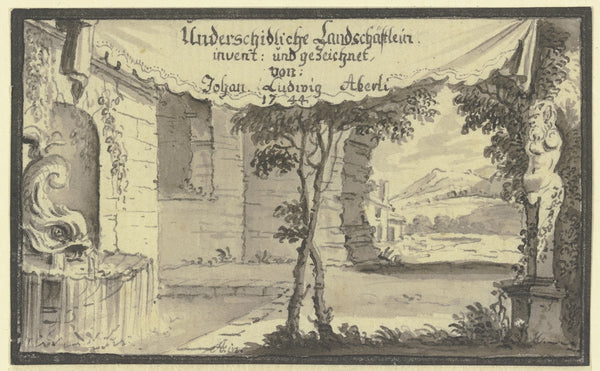 Underschidliche Landschäftlein.
invent: und gezeichnet,
von:
Johan. Ludwig Aberli
1744.